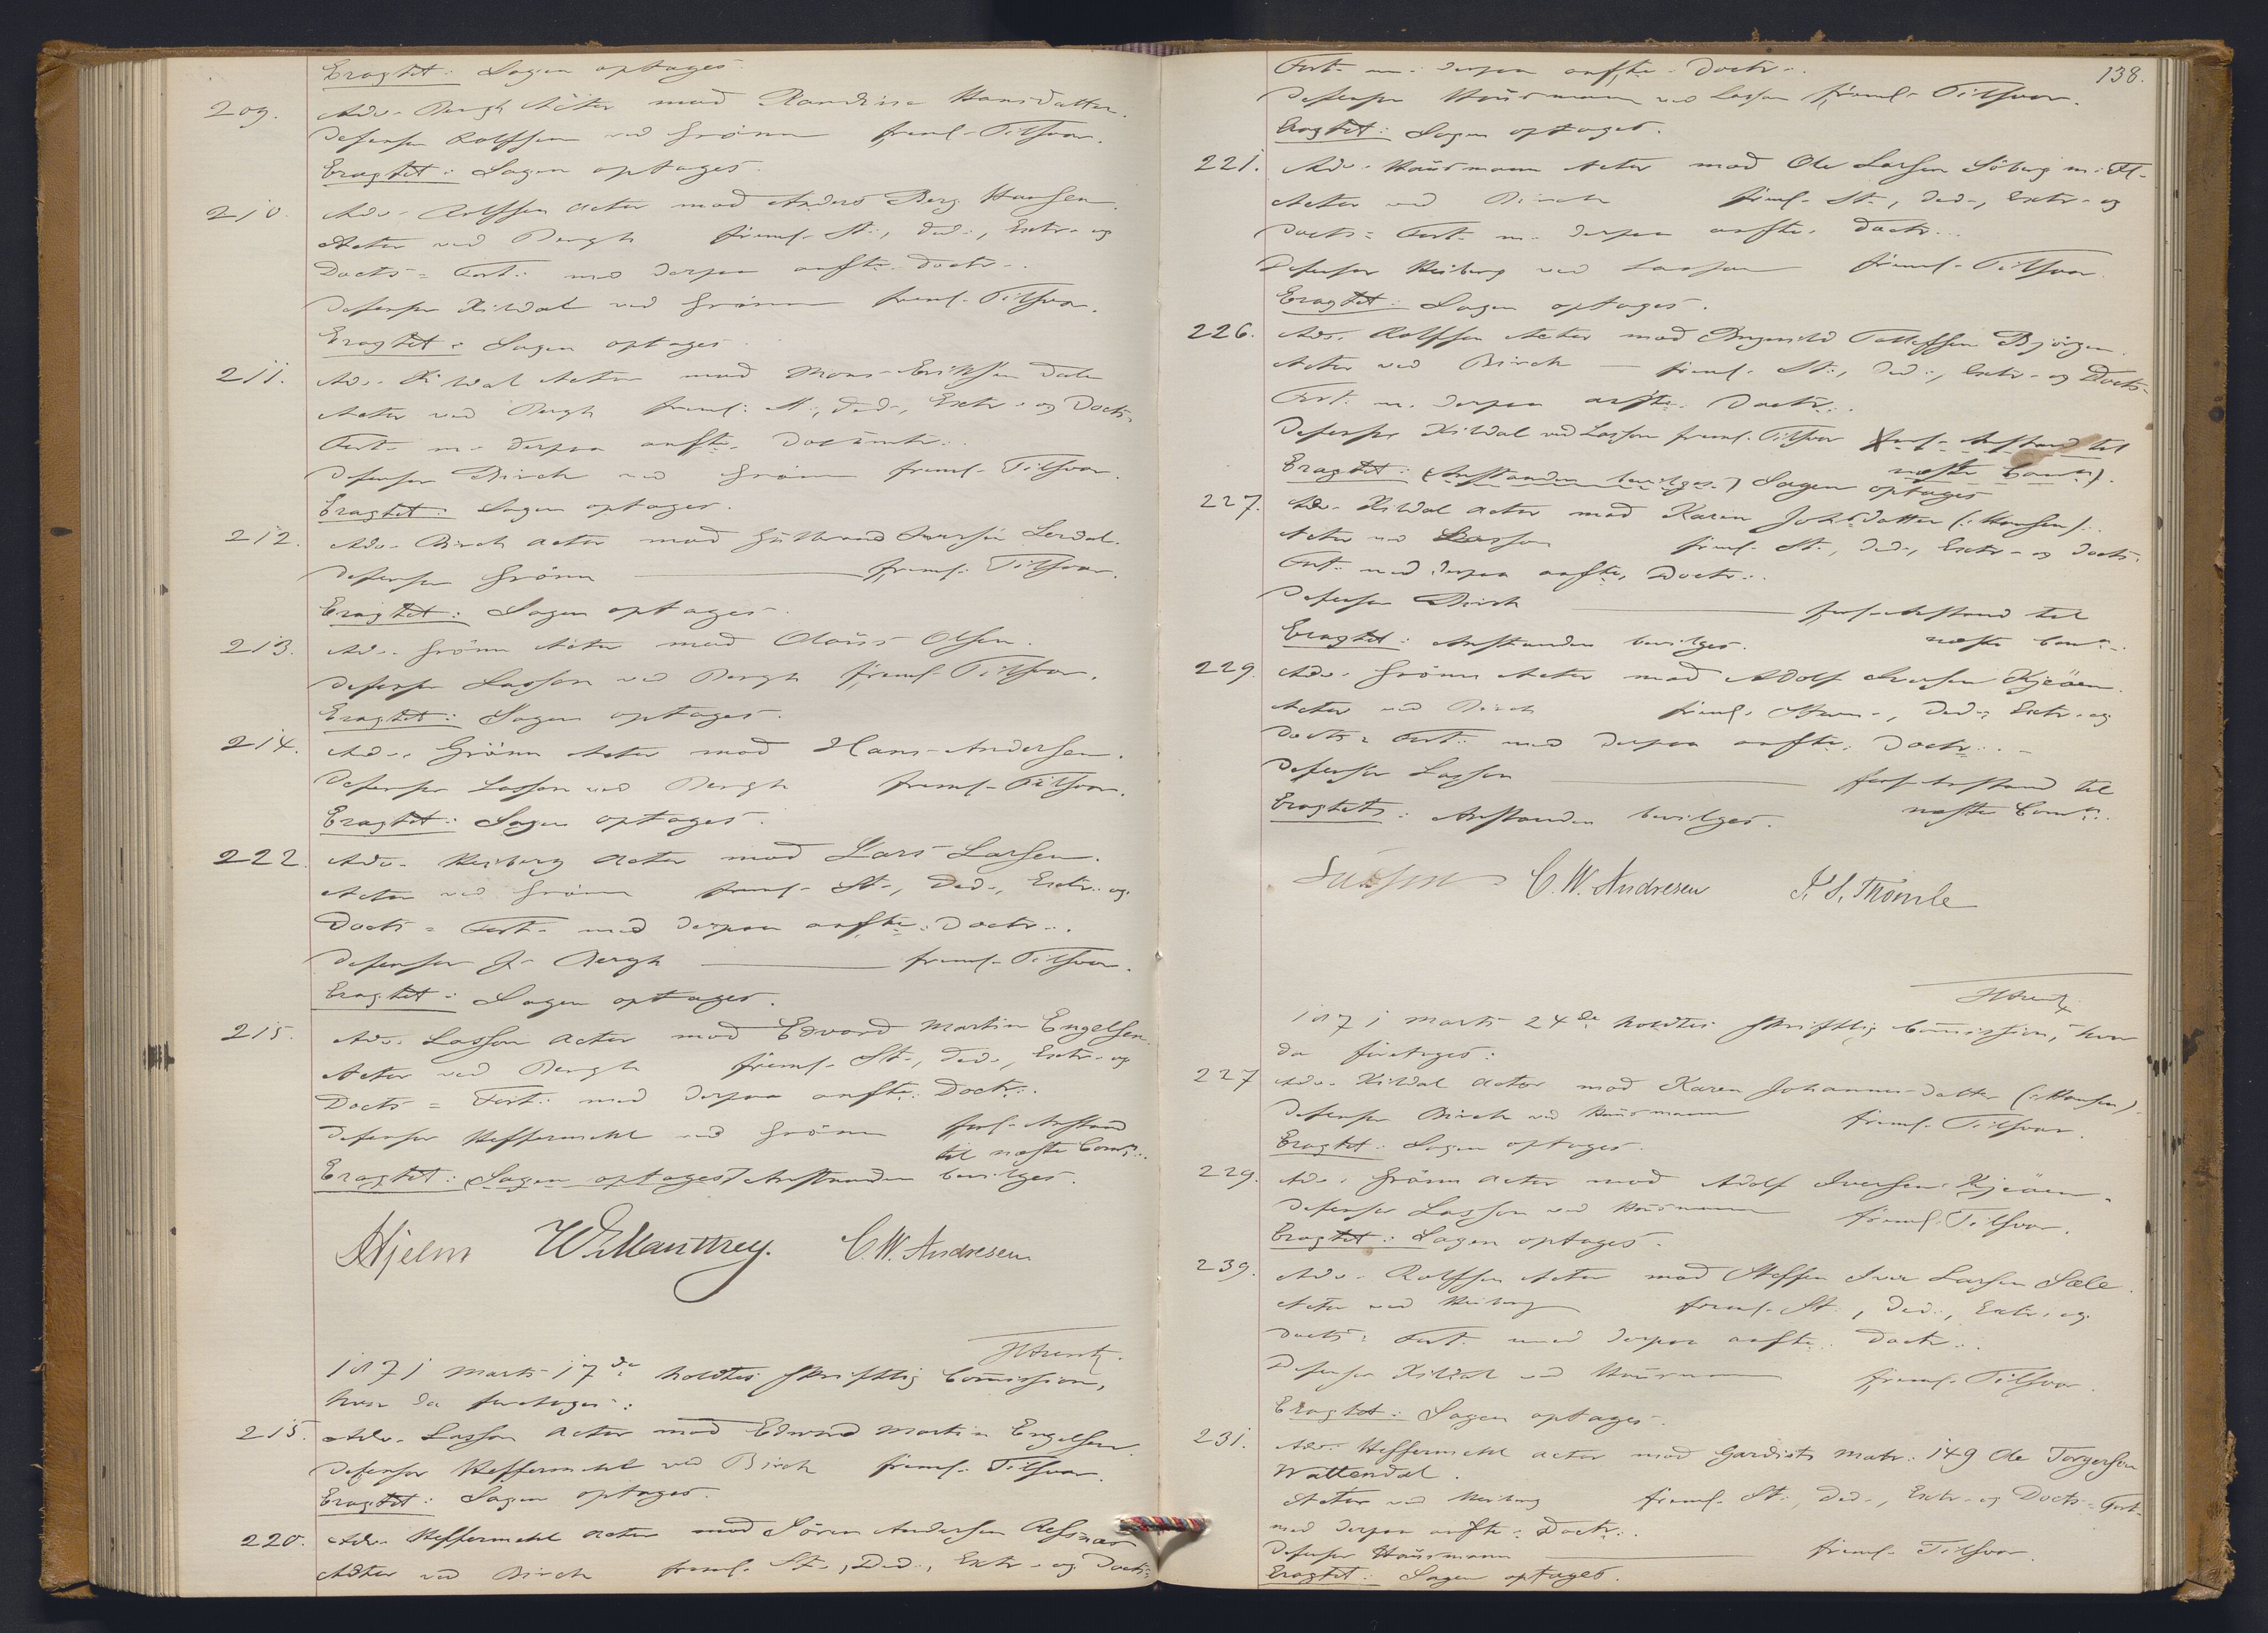 Eragtet: Sagen optages.
209. Adv. Bergh Actor mod Randine Hansdatter.
Defensor Rolffsen ved Grönn freml. Tilsvar.
Eragtet: Sagen optages.
210. Adv. Rolffsen Actor mod Anders Berg Hansen.
Actor ved Bergh freml. St., Ded., Extr. og
Docts= Fort. med derpaa anfte. Doctr.
Defensor Kildal ved Grönn freml. Tilsvar.
Eragtet: Sagen optages.
211. Adv. Kildal Actor mod Mons Eriksen Dale
Actor ved Bergh freml. St., Ded., Extr. og Docts=
Fort. m. derpaa anfte. Documtr.
Defensor Birch ved Grönn freml. Tilsvar.
Eragtet: Sagen optages.
212. Adv. Birch Actor mod Gulbrand Iversen Lerdal.
Defensor Grönn freml. Tilsvar.
Eragtet: Sagen optages.
213. Adv. Grönn Actor mod Olaus Olsen.
Defensor Lasson ved Bergh freml. Tilsvar.
Eragtet: Sagen optages.
214. Adv. Grönn Actor mod Hans Andersen.
Defensor Lasson ved Bergh freml. Tilsvar.
Eragtet: Sagen optages.
222. Adv. Heiberg Actor mod Lars Larsen.
Actor ved Grönn freml. St., Ded., Extr. og
Docts= Fort. med derpaa anfte. Doctr.
Defensor J. Bergh freml. Tilsvar.
Eragtet: Sagen optages.
215. Adv. Lasson Actor mod Edvard Martin Engelsen.
Actor ved Bergh freml. St., Ded., Extr. og
Docts= Fort. med derpaa anfte. Doctr.
Defensor Heffermehl ved Grönn forl. Anstand
til næste Comn.
Eragtet: (Sagen optages) Anstanden bevilges.
Hjelm W. Manthey. C. W. Andresen
1871 Marts 17de holdtes skriftlig Commission,
hvor da foretoges:
215. Adv. Lasson Actor mod Edvard Martin Engelsen.
Defensor Heffermehl ved Birch freml. Tilsvar.
Eragtet: Sagen optages.
220. Adv. Heffermehl Actor mod Sören Andersen Refsnæs
Actor ved Birch freml. St., Ded., Extr. og Docts=
138.
Fort. m. derpaa anfte. Doctr.
Defensor Huusmann ved Lasson freml. Tilsvar.
Eragtet: Sagen optages.
221. Adv. Huusmann Actor mod Ole Larsen Söberg m. Fl.
Actor ved Birch freml. St., Ded., Extr. og
Docts= Fort. m. derpaa anfte. Doctr.
Defensor Heiberg ved Lasson freml. Tilsvar.
Eragtet: Sagen optages.
226. Adv. Rolffsen Actor mod Tollefsen Björgen.
Actor ved Birch freml. St., Ded., Extr. og Docts=
Fort. m. derpaa anfte. Doctr.
Defensor Kildal ved Lasson freml. Tilsvar (forl. Anstand til
næste Comn).
Eragtet: (Anstanden bevilges.) Sagen optages
227. Adv. Kildal Actor mod Karen Johsdatter (: Hansen).
Actor ved Lasson freml. St., Ded., Extr. og Docts.
Fort. med derpaa anfte. Doctr.
Defensor Birch forl. Anstand til
næste Comn.
Eragtet: Anstanden bevilges.
229. Adv. Grönn Actor mod Adolf Iversen Kjeöen.
Actor ved Birch freml. Stevn., Ded., Extr. og
Docts= Fort. med derpaa anfte. Doctr.
Defensor Lasson forl. Anstand til
næste Comn.
Eragtet: Anstanden bevilges.
C. W. Andresen
1871 Marts 24de holdtes skriftlig Commission, hvor
da foretoges:
227 Adv. Kildal Actor mod Karen Johannesdatter (: Hansen).
Defensor Birch ved Huusmann freml. Tilsvar.
Eragtet: Sagen optages.
229. Adv. Grönn Actor mod Adolf Iversen Kjeöen.
Defensor Lasson ved Huusmann freml. Tilsvar.
Eragtet: Sagen optages.
239. Adv. Rolffsen Actor mod Steffen Iver Larsen Sæle.
Actor ved Heiberg freml. St., Ded., Extr. og
Docts= Fort. med derpaa anfte. Doctr.
Defensor Kildal ved Huusmann freml. Tilsvar.
Eragtet: Sagen optages.
231. Adv. Heffermehl Actor mod Gardist Matr. 149 Ole Torgersen
Wattendal.
Actor ved Heiberg freml. St., Ded., Extr. og Docts= Fort.
med derpaa anfte. Doctr.
Defensor Huusmann freml. Tilsvar.
Eragtet: Sagen optages.